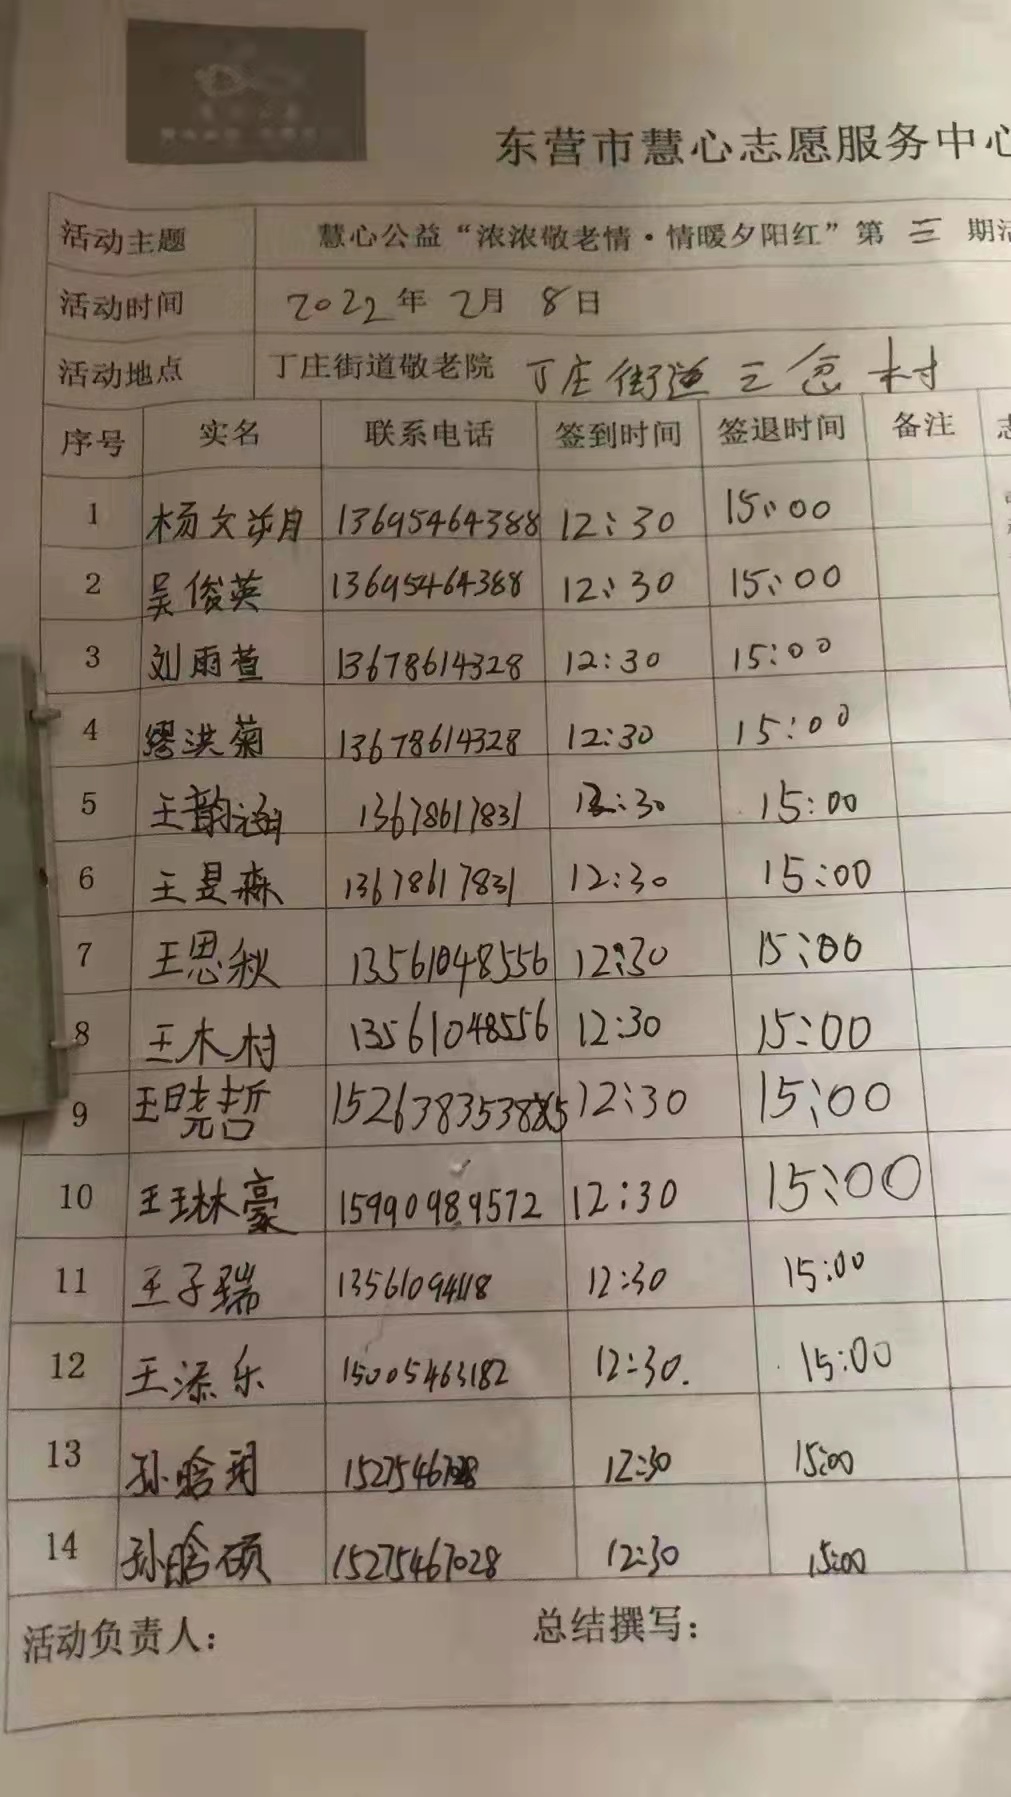 东营市慧心志愿服务中心
活动主题 慧心公益“浓浓敬老情·情暖夕阳红”第 三 期活
活动时间 2022年 2月 8日
活动地点 丁庄街道敬老院 丁庄街道三 村
序号 实名 联系电话 签到时间 签退时间 备注 志
1 杨文 13695464388 12:30 15:00
2 吴俊英 13695464388 12:30 15:00
3 刘雨萱 13678614328 12:30 15:00
4 缪洪菊 13678614328 12:30 15:00
5 王韵涵 13678617831 12:30 15:00
6 王昱森 13678617831 12:30 15:00
7 王思秋 13561048556 12:30 15:00
8 王木村 13561048556 12:30 15:00
9 王晓哲 12:30 15:00
10 王琳豪 15990989572 12:30 15:00
11 王子瑞 12:30 15:00
12 王添乐 15005463182 12:30. 15:00
13 孙晗玥 12:30 15:00
14 孙晗硕 15275467028 12:30 15:00
活动负责人： 总结撰写：